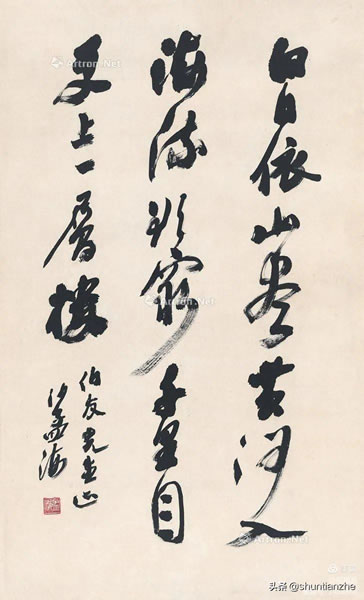 白日依山盡黄河入
海流欲窮千里目
更上一層樓
伯友先生正
沙孟海
Artron.Net
Artron.Net
Artron.Net
Artron.Net
头条 @shuntianzhe